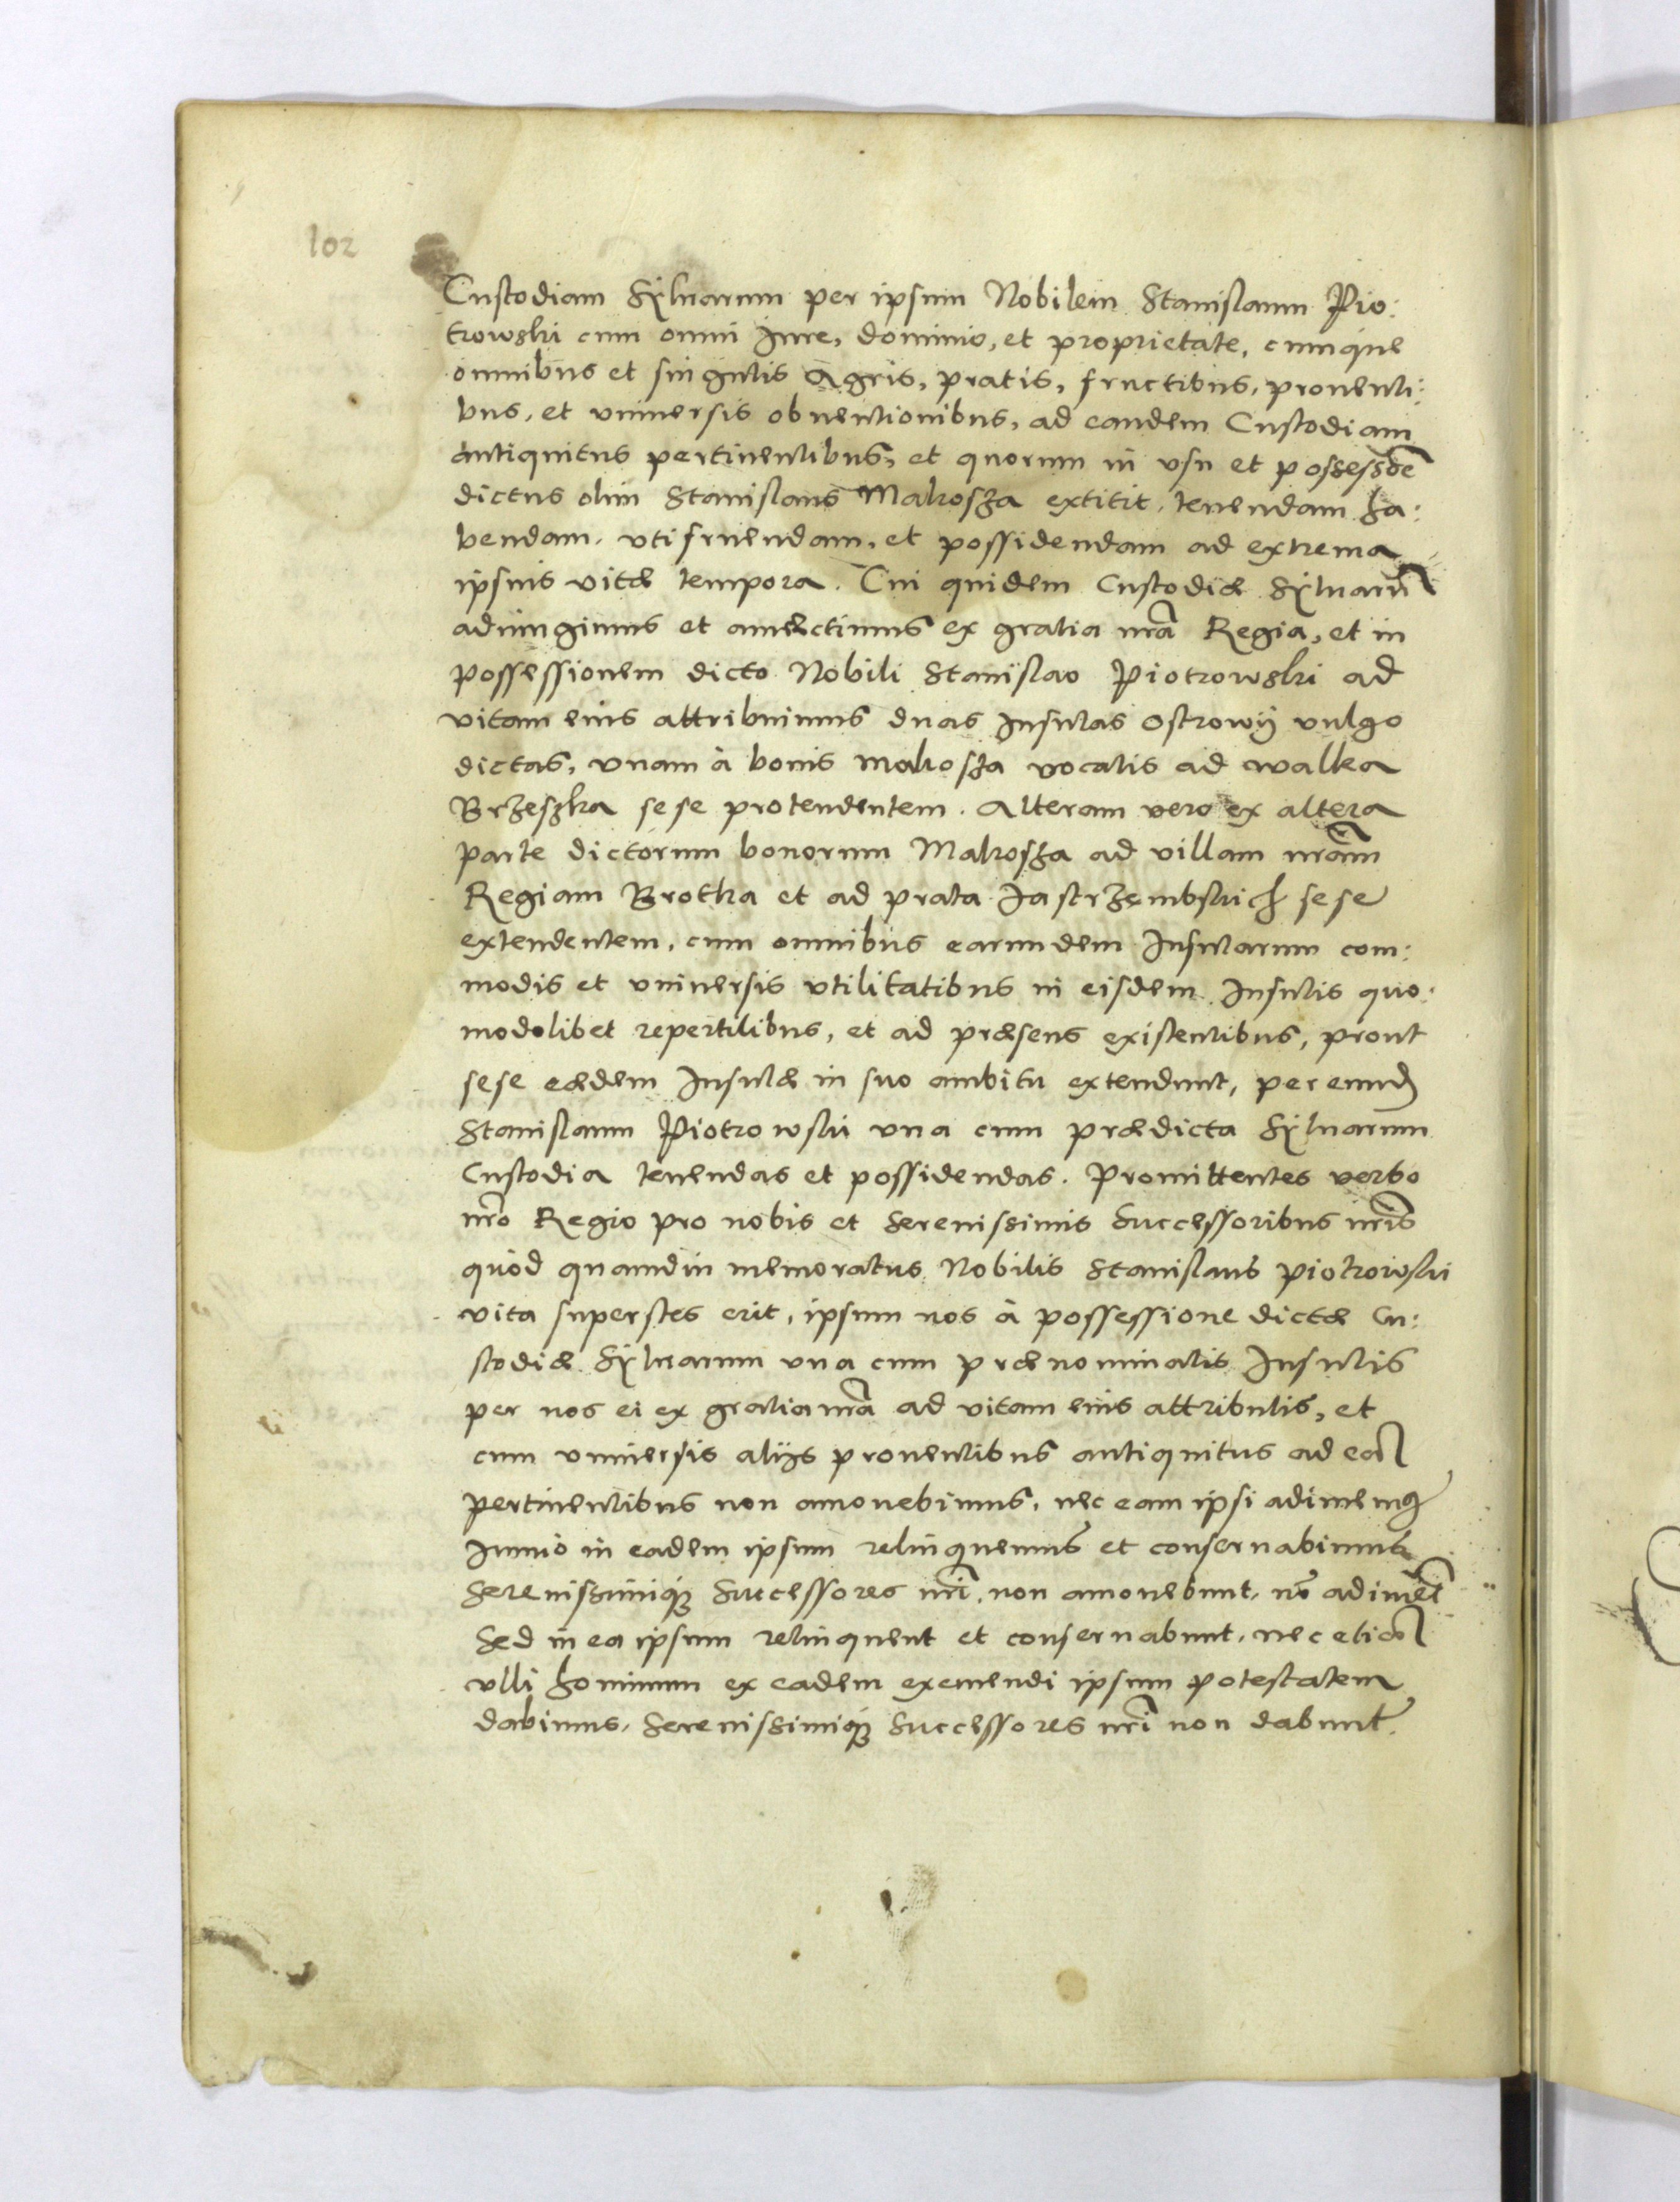 102
Custodiam Sÿluarum per ipsum Nobilem Stanislaum Pio:
trowski cum omni Iure, dominio, et proprietate, cumque
omnibus et singulis Agris, pratis, fructibus, prouenti:
bus, et vniuersis obuentionibus, ad eandem Custodiam
antiquitus pertinentibus, et quorum in vsu et possessõe
dictus olim Stanislaus Makosza extitit, tenendam ha:
bendam, vtifruendam, et possidendam ad extrema
ipsius vitæ tempora. Cui quidem Custodiæ Sÿluarũ
adiungimus et annectimus ex gratia nr̃a Regia, et in
possessionem dicto Nobili Stanislao Piotrowski ad
vitam eius attribuimus duas Insulas Ostrowÿ vulgo
dictas, vnam à bonis Makosza vocatis ad walka
Brzeszka sese protendentem. Alteram vero ex altera
parte dictorum bonorum Makosza ad villam nr̃am
Regiam Brotka et ad prata Jastrzembskich sese
extendentem, cum omnibus earundem Insularum com:
modis et vniuersis vtilitatibus in eisdem Insulis quo:
modolibet repertilibus, et ad præsens existentibus, prout
sese eædem Insulæ in suo ambitu extendunt, per eund̃
Stanislaum Piotrowski vna cum prædicta Sÿluarum
Custodia tenendas et possidendas. Promittentes verbo
nr̃o Regio pro nobis et Serenissimis Successoribus nr̃is
quòd quamdiu memoratus Nobilis Stanislaus Piotrowski
vita superstes erit, ipsum nos à possessione dictæ Cu:
stodiæ Sÿluarum vna cum prænominatis Insulis
per nos ei ex gratia nr̃a ad vitam eius attributis, et
cum vniuersis alijs prouentibus antiquitus ad eã
pertinentibus non amouebimus, nec eam ipsi adimemꝰ
Immò in eadem ipsum relinquemus et conseruabimus
Serenissimiqꝫ Successores nr̃i non amouebunt, nõ adimẽt
Sed in ea ipsum relinquent et conseruabunt, nec etiã
vlli hominum ex eadem exemendi ipsum potestatem
dabimus, Serenissimiqꝫ Successores nr̃i non dabunt.